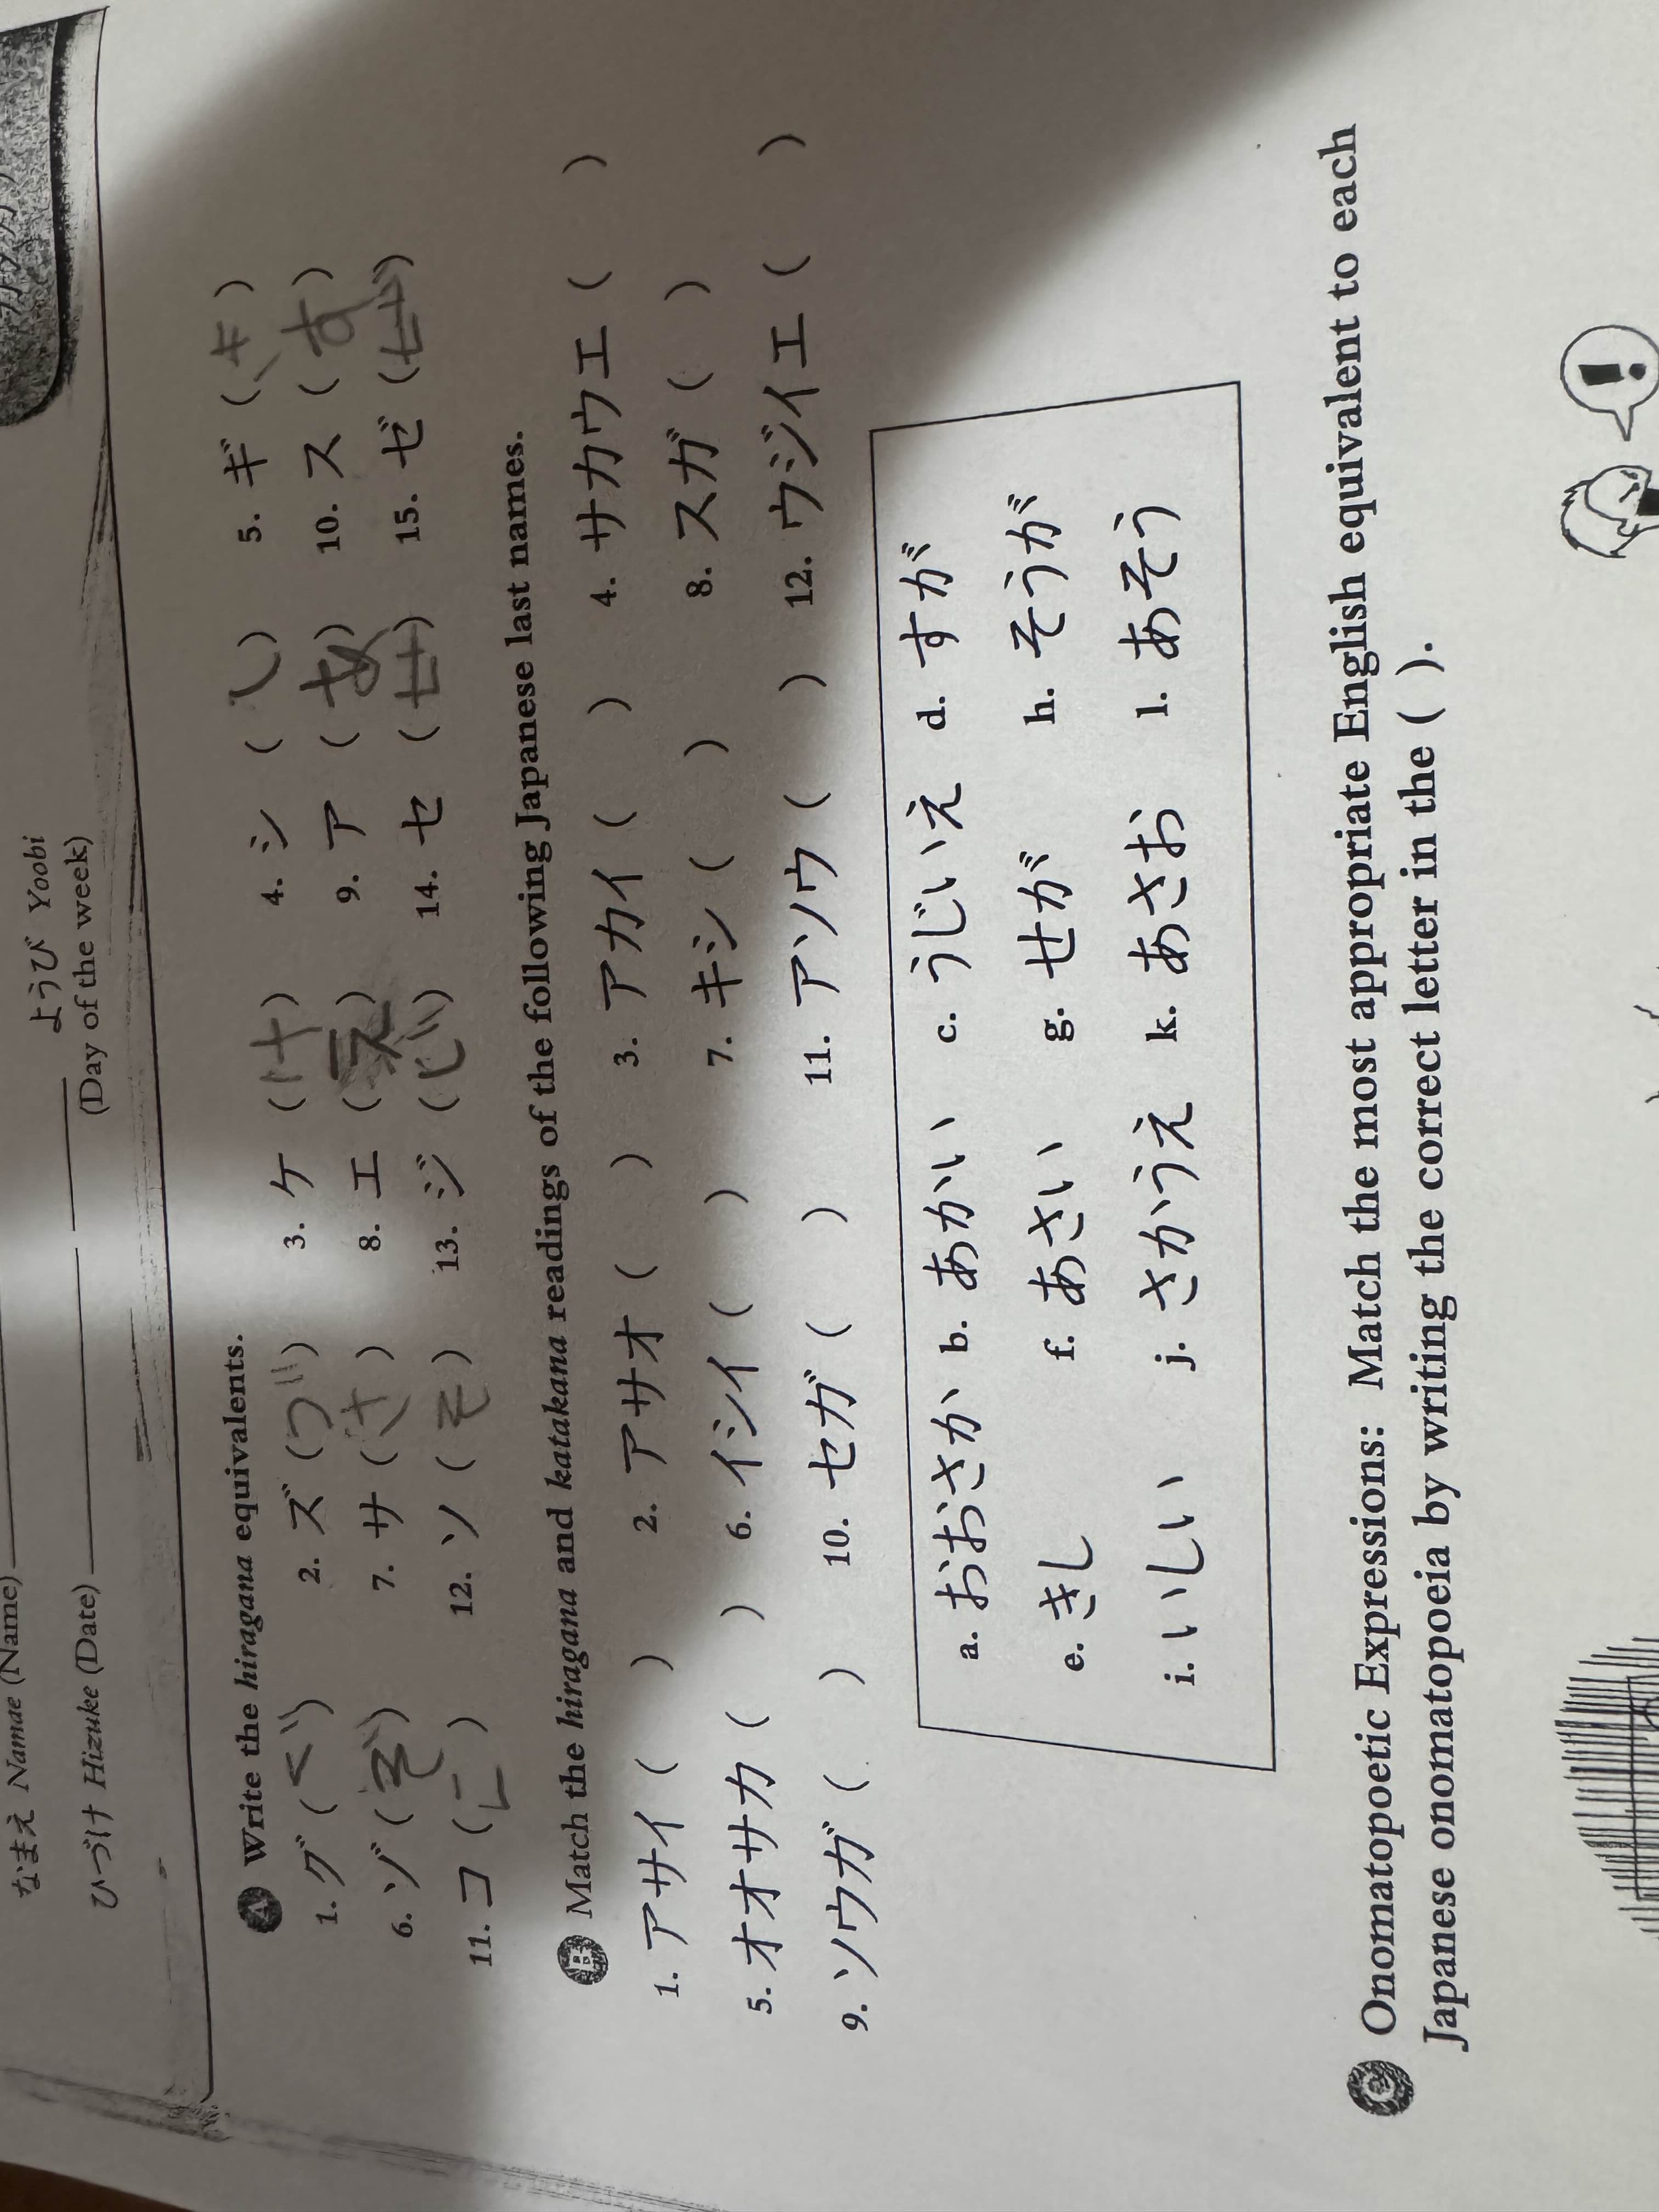 なまえ Namae (Name)
ようび Yoobi
ひづけ Hizuke (Date)
(Day of the week)
A Write the hiragana equivalents.
1. グ (ぐ) 2. ズ (づ) 3. ケ (け) 4. シ (し) 5. ギ ( )
6. ゾ (ぞ) 7. サ (さ) 8. エ (え) 9. ア (あ) 10. ス (す)
11. コ (こ) 12. ソ (そ) 13. ジ (じ) 14. セ (せ) 15. ゼ (ぜ)
B Match the hiragana and katakana readings of the following Japanese last names.
1. アサイ ( ) 2. アサオ ( ) 3. アカイ ( ) 4. サカウエ ( )
5. オオサカ ( ) 6. イシイ ( ) 7. キシ ( ) 8. スガ ( )
9. ソウガ ( ) 10. セガ ( ) 11. アソウ ( ) 12. ウジイエ ( )
a. おおさか b. あかい c. うじいえ d. すが
e. きし f. あさい g. せが h. そうが
i. いしい j. さかうえ k. あさお l. あそう
C Onomatopoetic Expressions: Match the most appropriate English equivalent to each
Japanese onomatopoeia by writing the correct letter in the ( ).
!